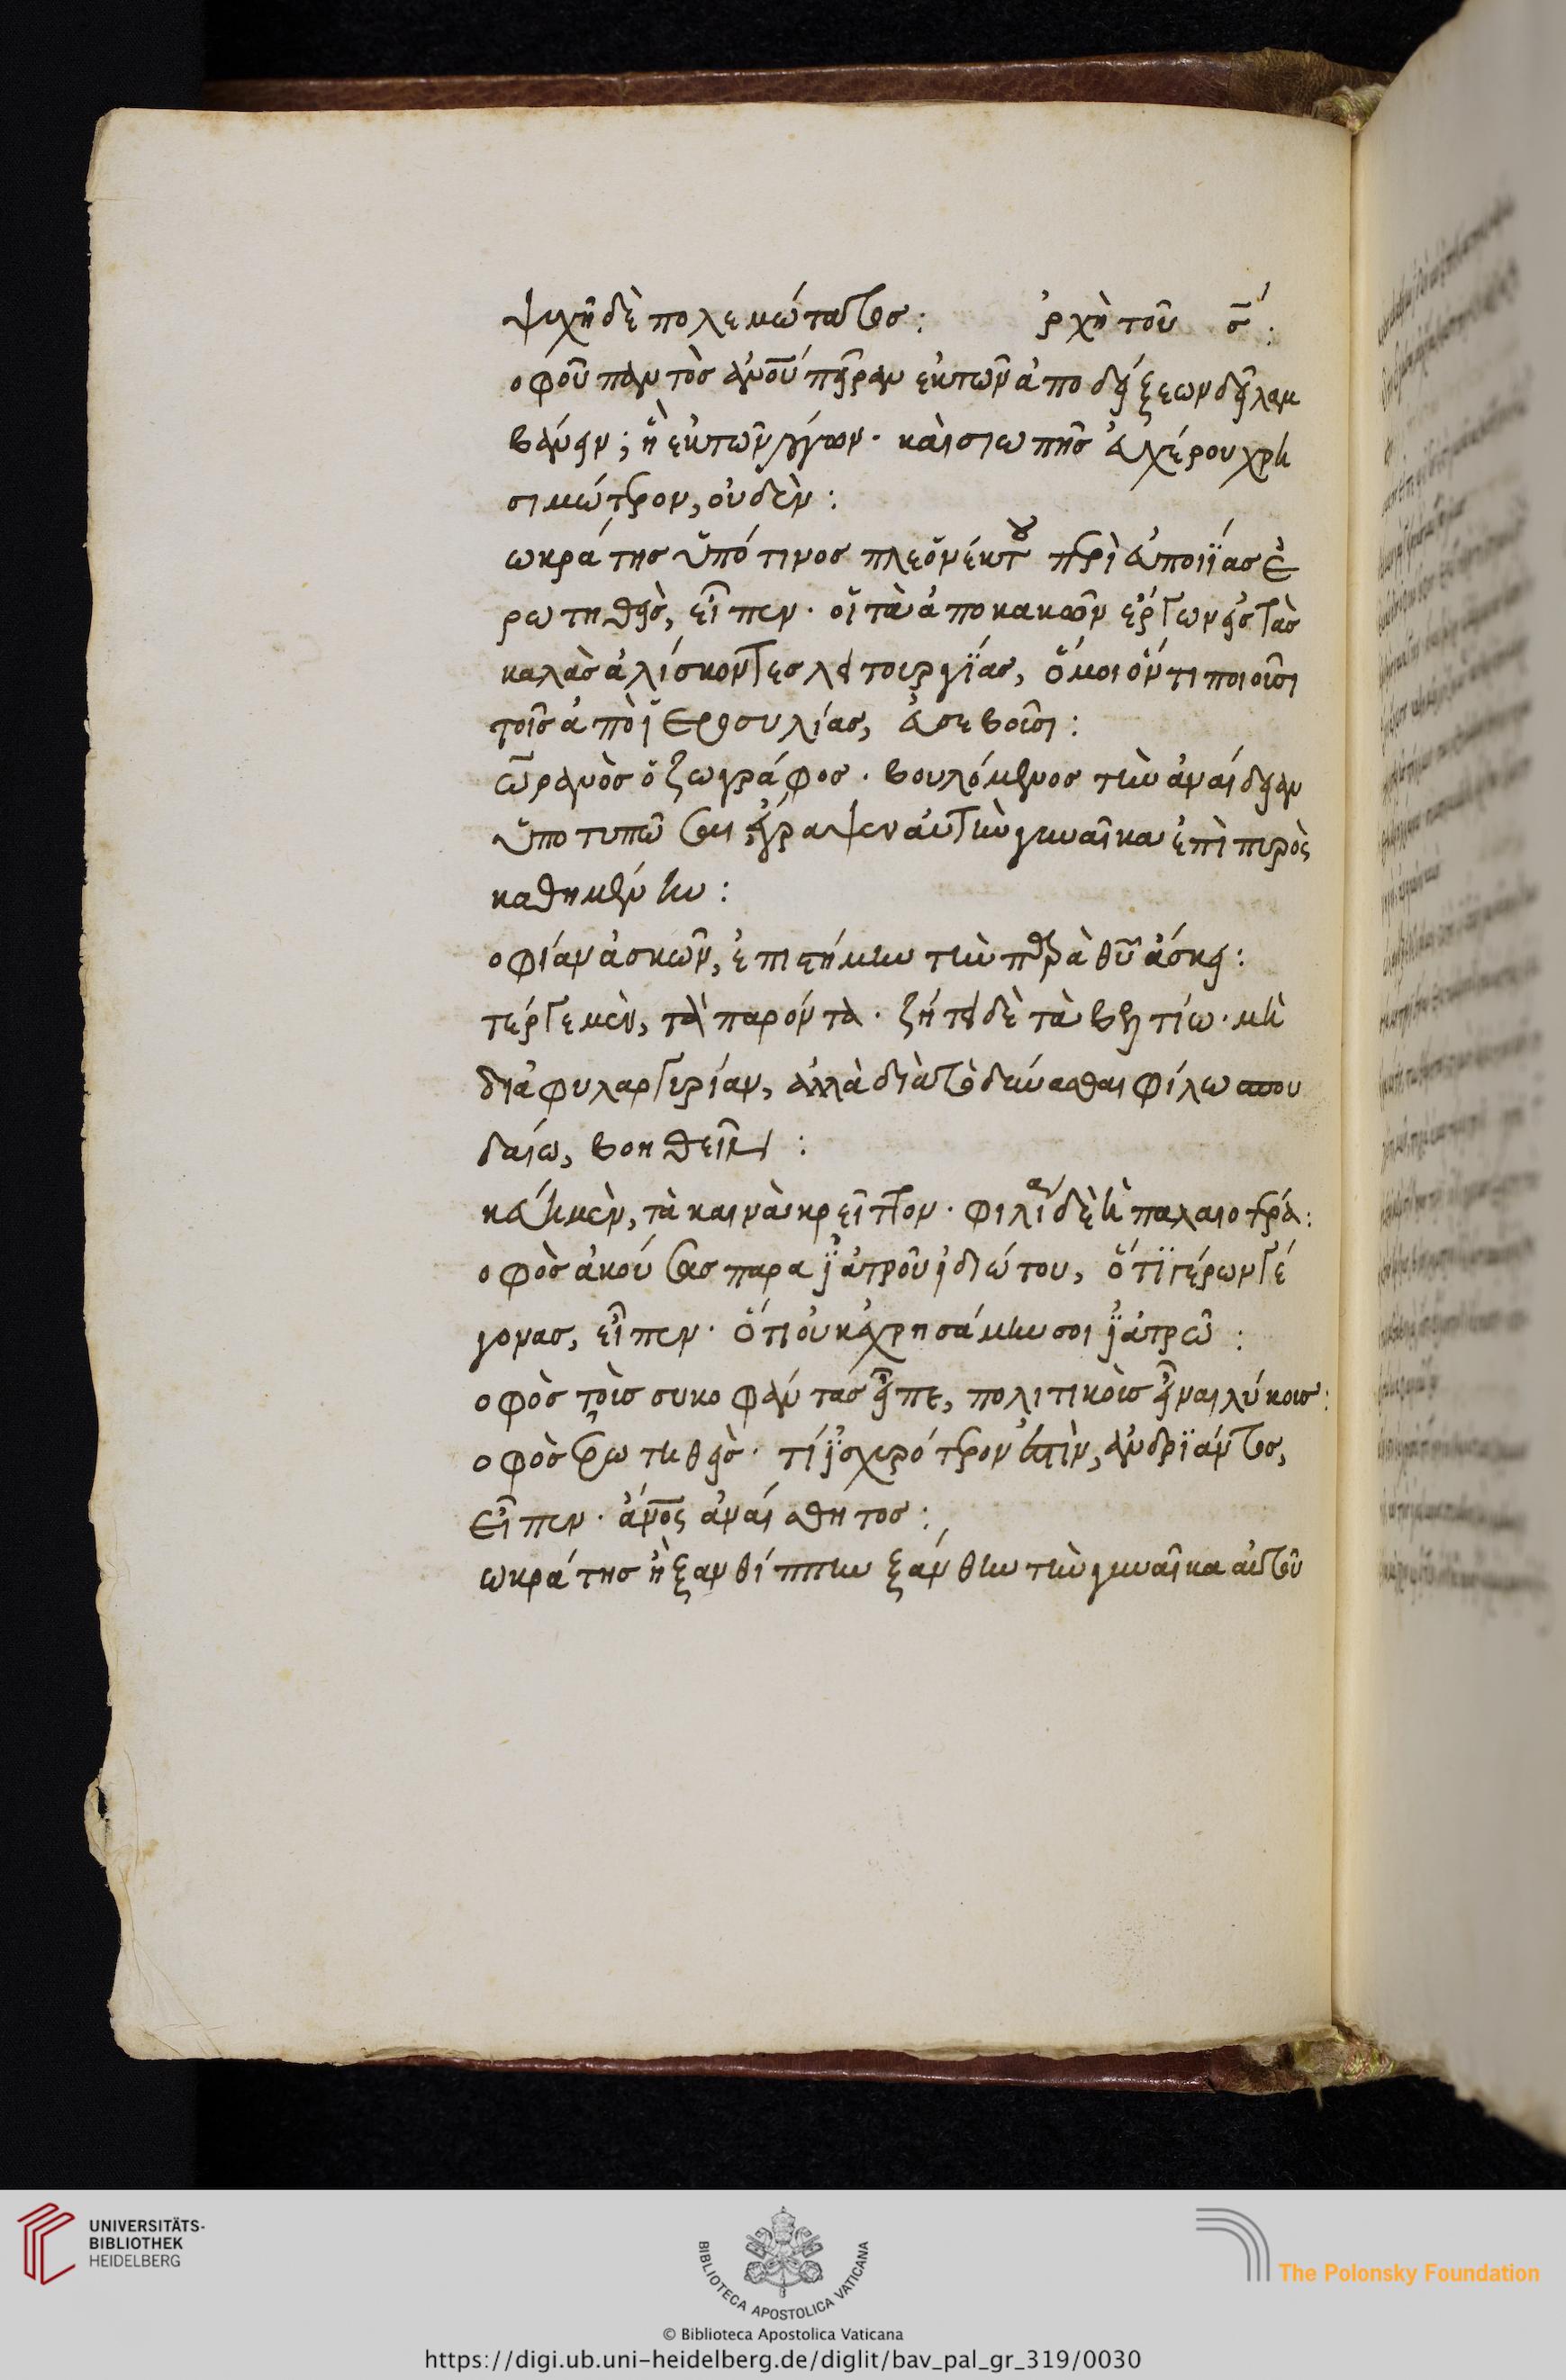 ψυχῆ δὲ πολεμώτατος: ρχὴ τοῦ σ̄:
οφοῦ παντὸς ἀν̅ου πεῖραν ἐκ τῶν ἀποδείξεων δεῖ λαμ
βάνειν; ἢ ἐκ τῶν λόγων· καὶ σιωπῆς ἐχέρου χρη
σιμώτερον, οὐδὲν:
ωκράτης ὑπό τινος πλεονέκτου περὶ εὐποιΐας ἐ
ρωτηθεὶς, εἶπεν· οἱ τὰ ἀπο κακῶν ἔργων εἰς τὰς
καλὰς ἀλίσκοντες λειτουργΐας, ὅμοιόν τι ποιοῦσι
τοῖς ἀπὸ ἱεροσυλίας, εὐσεβοῦσι:
ῶρανὸς ὁ ζωγράφος· βουλόμενος τὴν ἀναίδειαν
ὑποτυπῶσαι, ἔγραψεν αὐτὴν γυναῖκα ἐπὶ πυρὸς
καθημένην:
οφίαν ἀσκῶν, ἐπιστήμην τὴν περὰ θῦ ἄσκει:
τέργε μὲν, τὰ παρόντα· ζήτει δὲ τὰ βελτίω· μὴ
διὰ φυλαργυρίαν, ἀλλὰ διὰ τὸ δύνασθαι φίλω σπου
δαίω, βοηθεῖν:
κεύη μὲν, τὰ καινὰ κρεῖττον· φιλίαν δὲ ἡ παλαιοτέρα:
οφὸς ἀκούσας παρα ἰατροῦ ἰδιώτου, ὅτι γέρων γέ
γονας, εἶπεν· ὅτι οὐκ ἐχρησάμην σοι ἰατρῶ:
οφὸς τοὺς συκοφάντας εἶπε, πολιτικοὺς εἶναι λύκους:
οφὸς ἐρωτηθεὶς· τί ἰσχυρότερον ἐστὶν, ἀνδριάντος,
εἶπεν· ἄν̅ος ἀναίσθητος:
ωκράτης ἢ ξανθίππην ξάνθην τὴν γυναῖκα αὐτοῦ
UNIVERSITÄTS-
BIBLIOTHEK
HEIDELBERG
BIBLIOTECA APOSTOLICA VATICANA
The Polonsky Foundation
© Biblioteca Apostolica Vaticana
https://digi.ub.uni-heidelberg.de/diglit/bav_pal_gr_319/0030